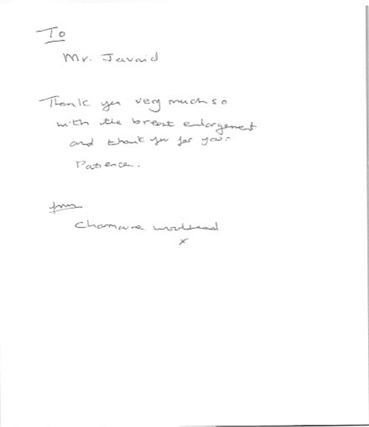 To
Mr. Javaid
Thank you very much so
with the breast enlargement
and thank you for your
Patience.
from
x